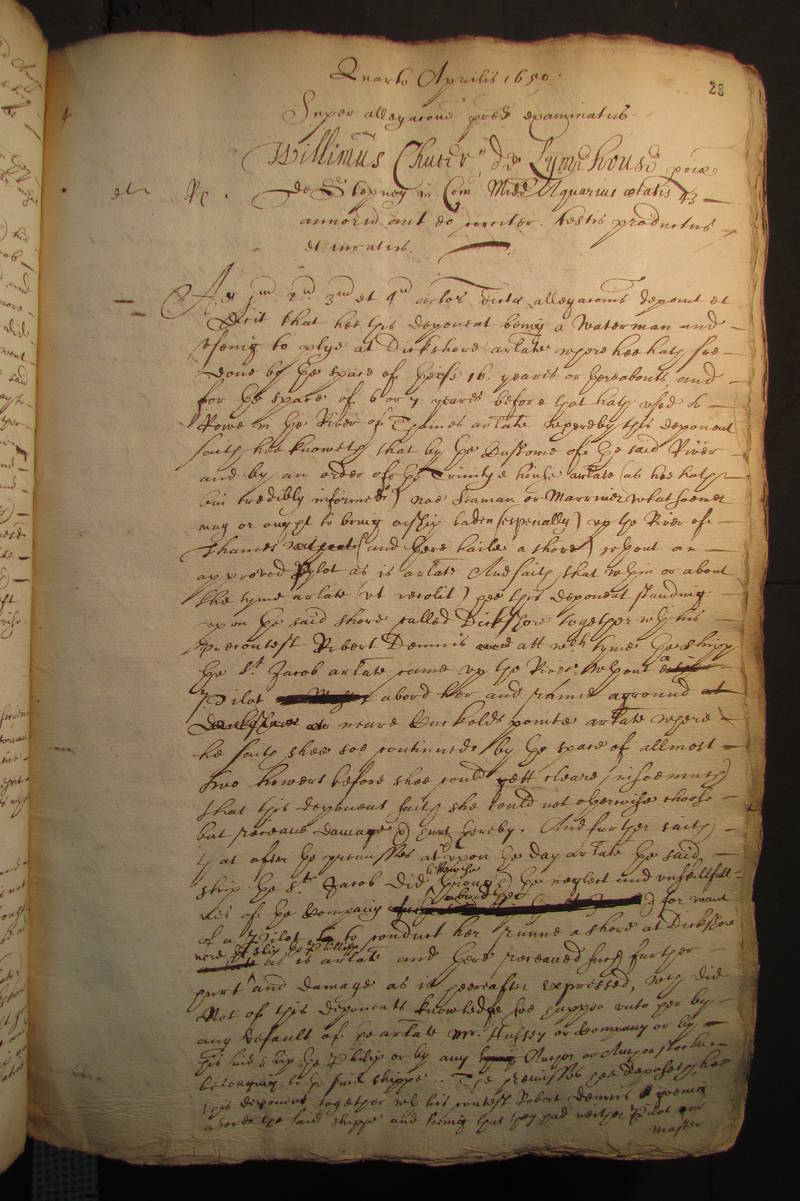 28
Quarto Aprilis 1650.
Super allegacone pred examinatus
Willimus Chuter de Lymehouse
de Stepney in Com Midd Aquarius ætatis 43
annorũ aut eo circiter. testis productus
et iuratus.
Ad 1um 2um 3um et 4um artos dicta allegaconis deponit et
dicit that hee this deponent being a Waterman and
useing to plye at Dickshore artate where hee hath soe
done by the space of these 16. yeares or thereabouts and
for the space of 6 or 7 yeares before that hath used to
Rowe in the River of Thames artate whereby this deponent
saith hee knoweth that by the Custome of the said River
and by an order of the Trinity house artate (as hee hath
bin credibly informed) noe Seaman or Marriner whatsoever
may or ought to bring a ship laden (especially) up the River of
Thames (and there haile a shore) without an
approved Pylot as is artate And saith that upon or about
the tyme artate (ut recolit) hee this deponent standing
upon the said shore called Dickshore together with his
precontest Robert Dennis att wch tyme the shipp
the St. Jacob artate came up the River without a
Pilot abord her and runne aground
neare Cuckolds pointe artate where
he saith shee soe continued by the space of allmost
two howers before shee could gett cleare insoemuch
that this deponent saith she could not otherwise choose
but receave damage thereby. And further saith
that after the premisses upon the day artate the said
ship the St. Jacob did likewise through the neglect and unskillfull-
nes of the Company abord her for want
of a Pilot to conduct her runne a shore at Dickshore
neere the ship the Phillip as is artate and there receaved such further
hurt and damage as is hereafter expressed, wch did
Not of this deponents knowledge soe happen unto her by
any default of the artate Mr. Hussey or Company or by
the said ship the Philip or by any Anchor or Anchor stocke
belonging to the said shippe. The premisses hee deposeth hee
this deponent together with his contest Robert Dennis goeing
abord the said shippe and seeing that they had neither Pilot nor
Master